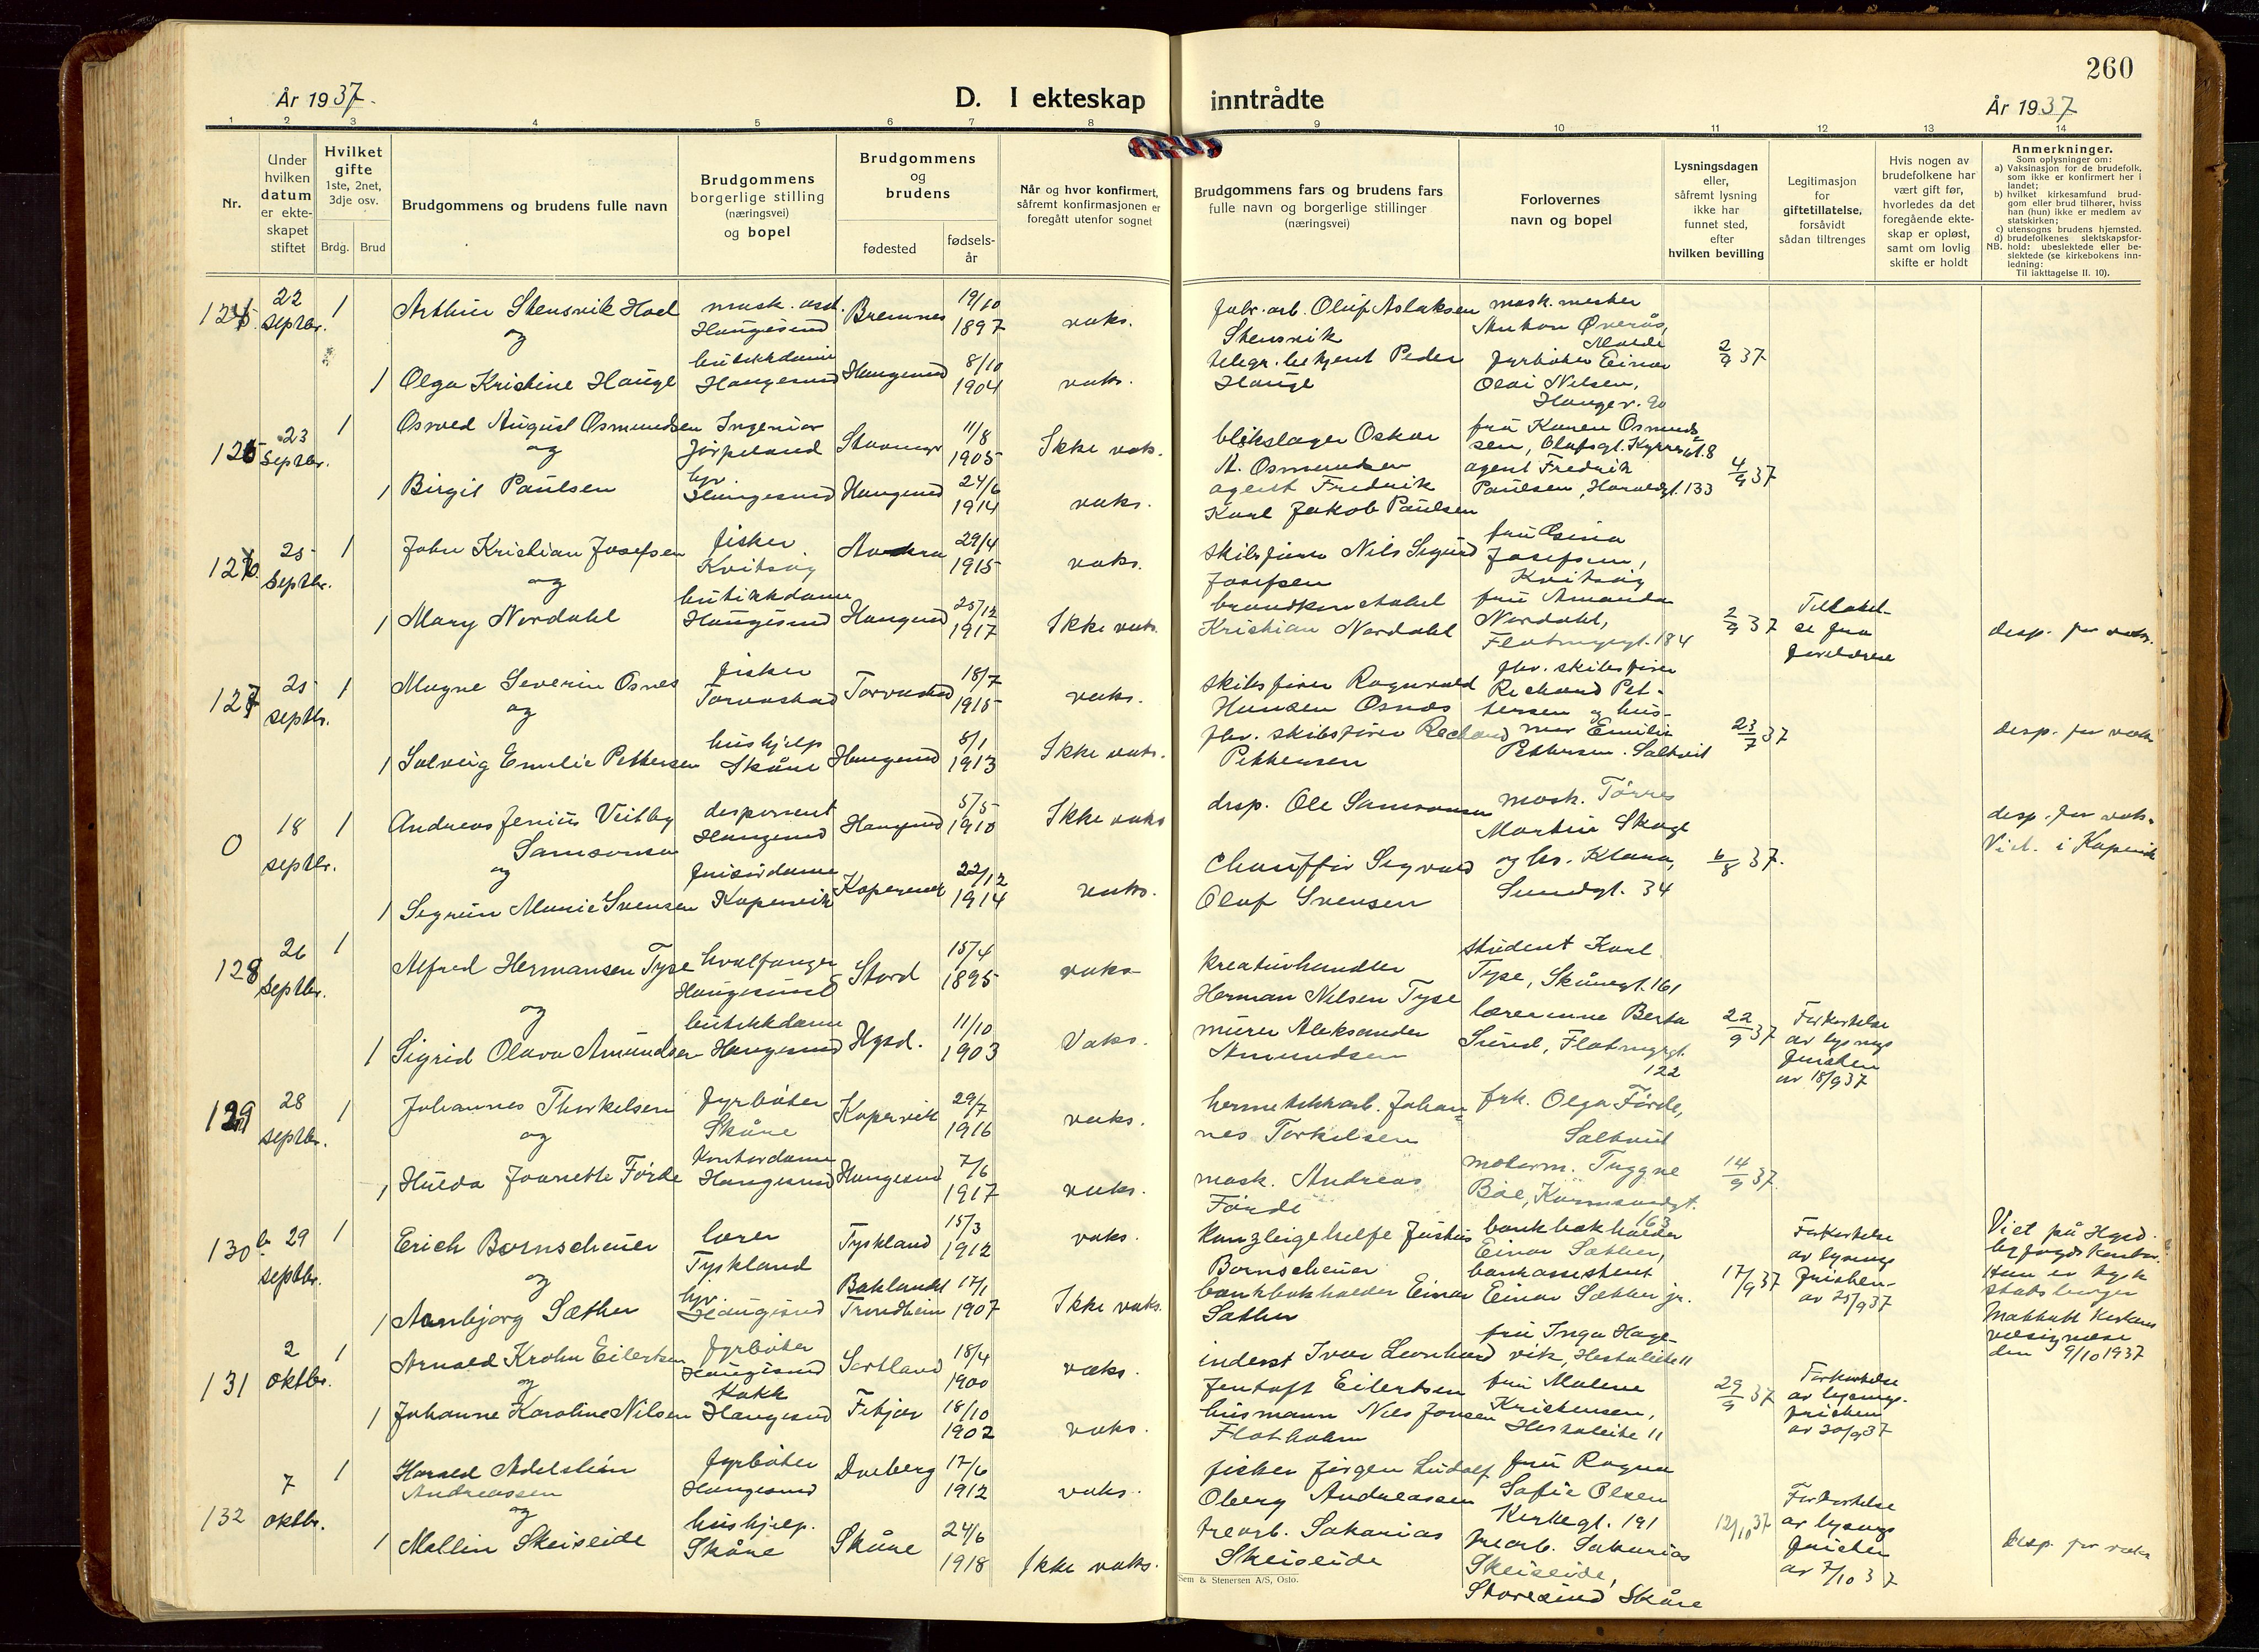 260
År 1937.
D. I ekteskap inntrådte
År 1937
1 2 3 4 5 6 7 8 9 10 11 12 13 14
Nr.
Under hvilken datum er ekte-skapet stiftet
Hvilket gifte
1ste, 2net, 3dje osv.
Brdg. Brud
Brudgommens og brudens fulle navn
Brudgommens borgerlige stilling (næringsvei) og bopel
Brudgommens og brudens
fødested
fødsels-år
Når og hvor konfirmert, såfremt konfirmasjonen er foregått utenfor sognet
Brudgommens fars og brudens fars fulle navn og borgerlige stillinger (næringsvei)
Forlovernes navn og bopel
Lysningsdagen eller, såfremt lysning ikke har funnet sted, efter hvilken bevilling
Legitimasjon for giftetillatelse, forsåvidt sådan tiltrenges
Hvis nogen av brudefolkene har vært gift før, hvorledes da det foregående ekte-skap er opløst, samt om lovlig skifte er holdt
Anmerkninger.
Som oplysninger om:
a) Vaksinasjon for de brudefolk, som ikke er konfirmert her i landet;
b) hvilket kirkesamfund brud-gom eller brud tilhører, hviss han (hun) ikke er medlem av statskirken;
c) utensogns brudens hjemsted.
d) brudefolkenes slektskapsfor-hold: ubeslektede eller be-slektede (se kirkebokens inn-ledning:
NB.
Til iakttagelse II. 10).
22 septbr. 1 Arthur Stensvik Hoel mask. ass. Haugesund Bremnes 19/10 1897 vaks.
og
1 Olga Kristine Hauge butikkdame Haugesund Haugesund 8/10 1904 vaks.
fabr. arb. Oluf Aslaksen Stensvik
telegr. betjent Peder Hauge
mask. mester Anton Øverås, Molde
fyrbøter Einar Olai Nilsen, Hauger. 90
2/9 37
125 23 Septbr. 1 Osvald August Osmundsen Ingeniør Jørpeland Stavanger 11/8 1905 Ikke vaks.
og
1 Birgit Paulsen hv. Haugesund Haugesund 24/6 1914 vaks.
blikslager Oskar A. Osmundsen
agent Fredrik Karl Jakob Paulsen
fru Karen Osmundsen, Olafsgt.
agent Fredrik Paulsen, Haraldsgt. 133
4/9 37
126. 25 Septbr. 1 John Kristian Josefsen fisker Kvitsøy 29/4 1915 vaks.
og
1 Mary Nordahl butikkdame Haugesund Haugesund 25/12 1917 Ikke vaks.
skibsfører Nils Sigurd Josefsen
brandkonstabel Kristian Nordahl
fru Josefsen, Kvitsøy
fru Amanda Nordahl, Flotmyrgt. 184
2/9 37
Tillatelse fra foreldrene
desp. for vaks.
127 25 septbr. 1 Magne Severin Osnes fisker Torvastad Torvastad 18/7 1915 vaks.
og
1 Solveig Emilie Pettersen hushjelp Skåre Haugesund 8/1 1913 Ikke vaks.
skibsfører Ragnvald Hansen Osnes
fhv. skibsfører Richard Pettersen
fhv. skibsfører Richard Pettersen og hustruer Emilie Pettersen. Saltveit
23/7 37
desp. for vaks
0 18 septbr. 1 Andreas Jenius Veitby Samsonsen disponent Haugesund Haugesund 5/5 1910 Ikke vaks
og
1 Sigrun Marie Svensen frisørdame Kopervik Kopervik 22/12 1914 vaks.
disp. Ole Samsonsen
chauffør Sigvald Olaf Svensen
mask. Tørres Martin Skoge og hr. Klara, Sundgt. 34
6/8 37.
desp. for vaks.
Viet. i Kopervik
128 26 Septbr. 1 Alfred Hermansen Tyse hvalfanger Haugesund Stord 15/4 1895 vaks
og
1 Sigrid Olava Amundsen butikkdame Haugesund Hgsd. 11/10 1903 Vaks.
kreaturhandler Herman Nilsen Tyse
murer Aleksander Amundsen
student Karl Tyse, Skåregt. 161
lærerinne Berta Sund, Flotmyrgt. 122
22/9 37
Forkortelse av lysnings fristen av 18/9 37
129 28 septbr. 1 Johannes Thorkelsen fyrbøter Skåre Kopervik 29/7 1916 vaks.
og
1 Hulda Jeanette Førde Kontordame Haugesund Haugesund 7/6 1917 vaks.
hermetikkarb. Johannes Torkelsen
mask. Andreas Førde
frk. Olga Førde, Saltveit
motorm. Tryggve Bøe, Karmsundgt. 163
14/9 37
130 b 29 septbr. 1 Erich Bornscheuer lærer Tyskland Tyskland 15/3 1912 vaks.
og
1 Aanbjørg Sæther hv. Haugesund Baklandet Trondheim 17/1 1907 Ikke vaks.
kanzleigehilfe Justus Bornscheuer
bankbokholder Einar Sæther
bankbokholder Einar Sæther,
bankassistent Einar Sæther jr.
17/9 37
Forkortelse av lysnings fristen av 25/9 37
Viet på Hgsd. byfogdkontor.
Hun er tysk statsborger
Mottatt Kirkens velsignelse den 9/10 1937
131 2 oktbr. 1 Arnold Krohn Eilertsen fyrbøter Haugesund Sortland 18/4 1900 vaks.
og
1 Johanne Karoline Nilsen Kokk Haugesund Fitjar 18/10 1902 vaks.
inderst Ivar Leonhard Jentoft Eilertsen
husmann Nils Jonsen Flatholm
fru Inga Hagevik, Hestaleite 11
fru Malene Kristensen, Hestaleite 11
29/9 37
Forkortelse av lysnings. fristen av 30/9 37
132 7 oktbr. 1 Harald Adelstein Andreassen fyrbøter Haugesund Dverberg 17/6 1912 vaks.
og
1 Mallin Skeiseide hushjelp. Skåre Skåre 24/6 1918 Ikke vaks.
fisker Jørgen Ludolf Oberg Andreassen
trearb. Sakarias Skeiseide
fru Ragna Sofie Olsen Kirkegt. 191
trearb. Sakarias Skeiseide, Storesund Skåre
12/10 37
Forkortelse av lysnings fristen av 7/10 37
Desp. for vaks
Sem & Stenersen A/S, Oslo.